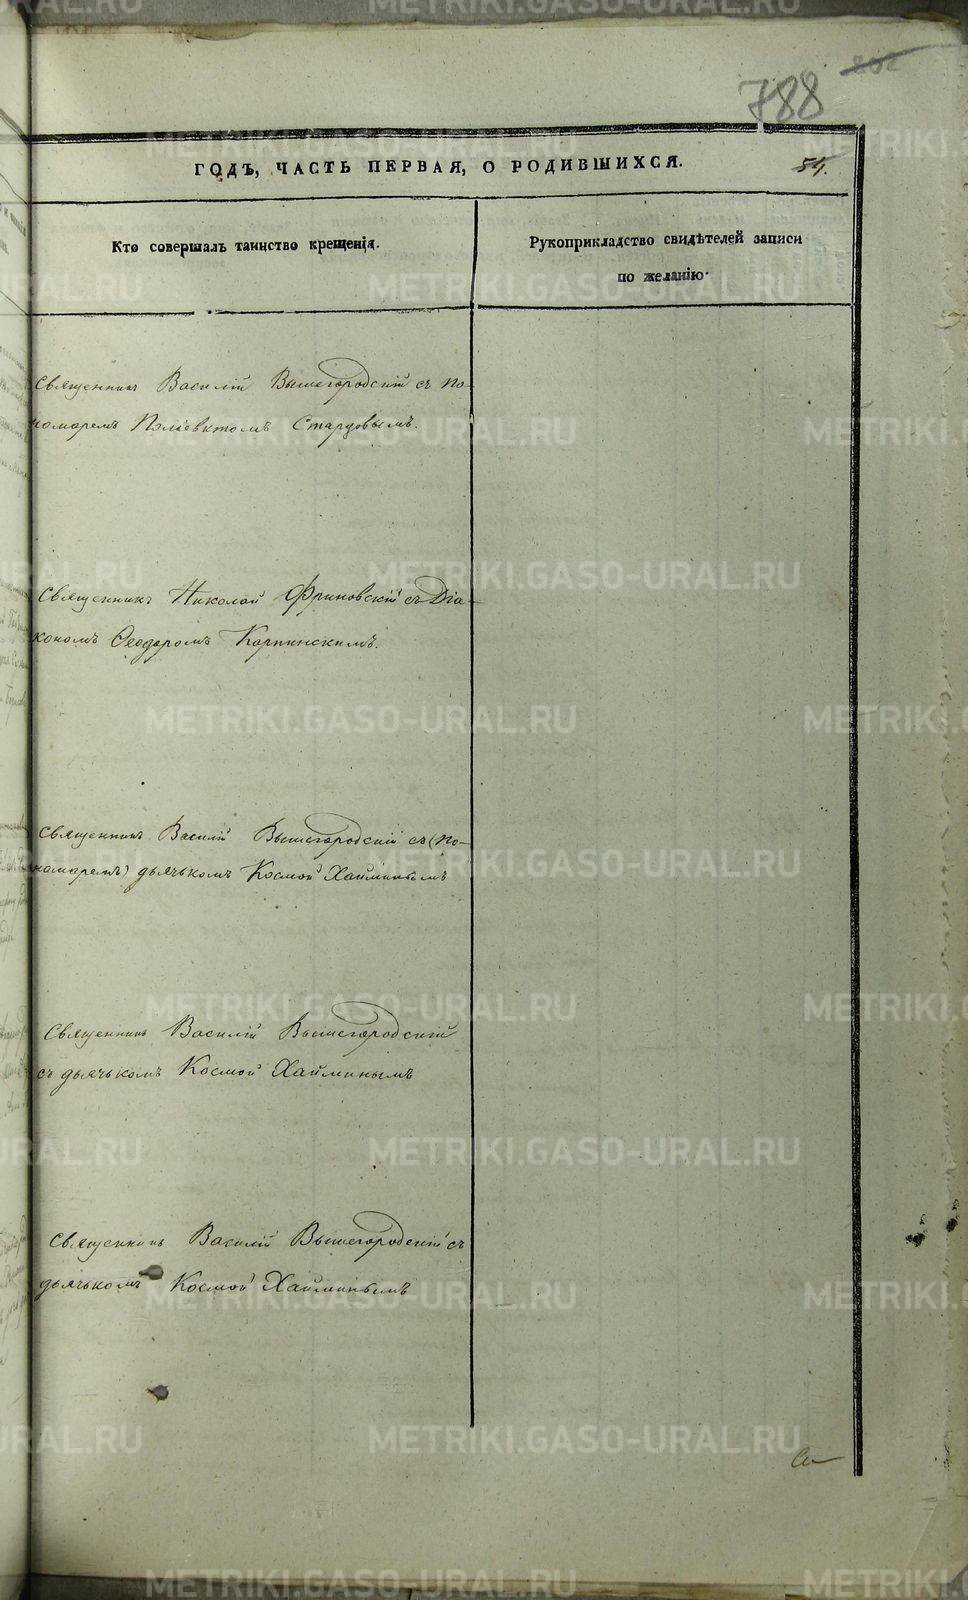 788
202
ГОДЪ, ЧАСТЬ ПЕРВАЯ, О РОДИВШИХСЯ.
54.
Кто совершалъ таинство крещенія.
Рукоприкладство свидѣтелей записи
по желанію.
Священникъ Василій Вышегородскій съ по-
номаремъ Поліевктомъ Стардовымъ.
Священникъ Николай Фриновскій съ Діа-
кономъ Ѳеодоромъ Карпинскимъ.
Священникъ Василій Вышегородскій съ (по-
номаремъ) дьячькомъ Космой Хайминымъ
Священникъ Василій Вышегородскій
съ дьячькомъ Космой Хайминымъ
Священникъ Василій Вышегородскій съ
дьячькомъ Космой Хайминымъ
METRIKI.GASO-URAL.RU